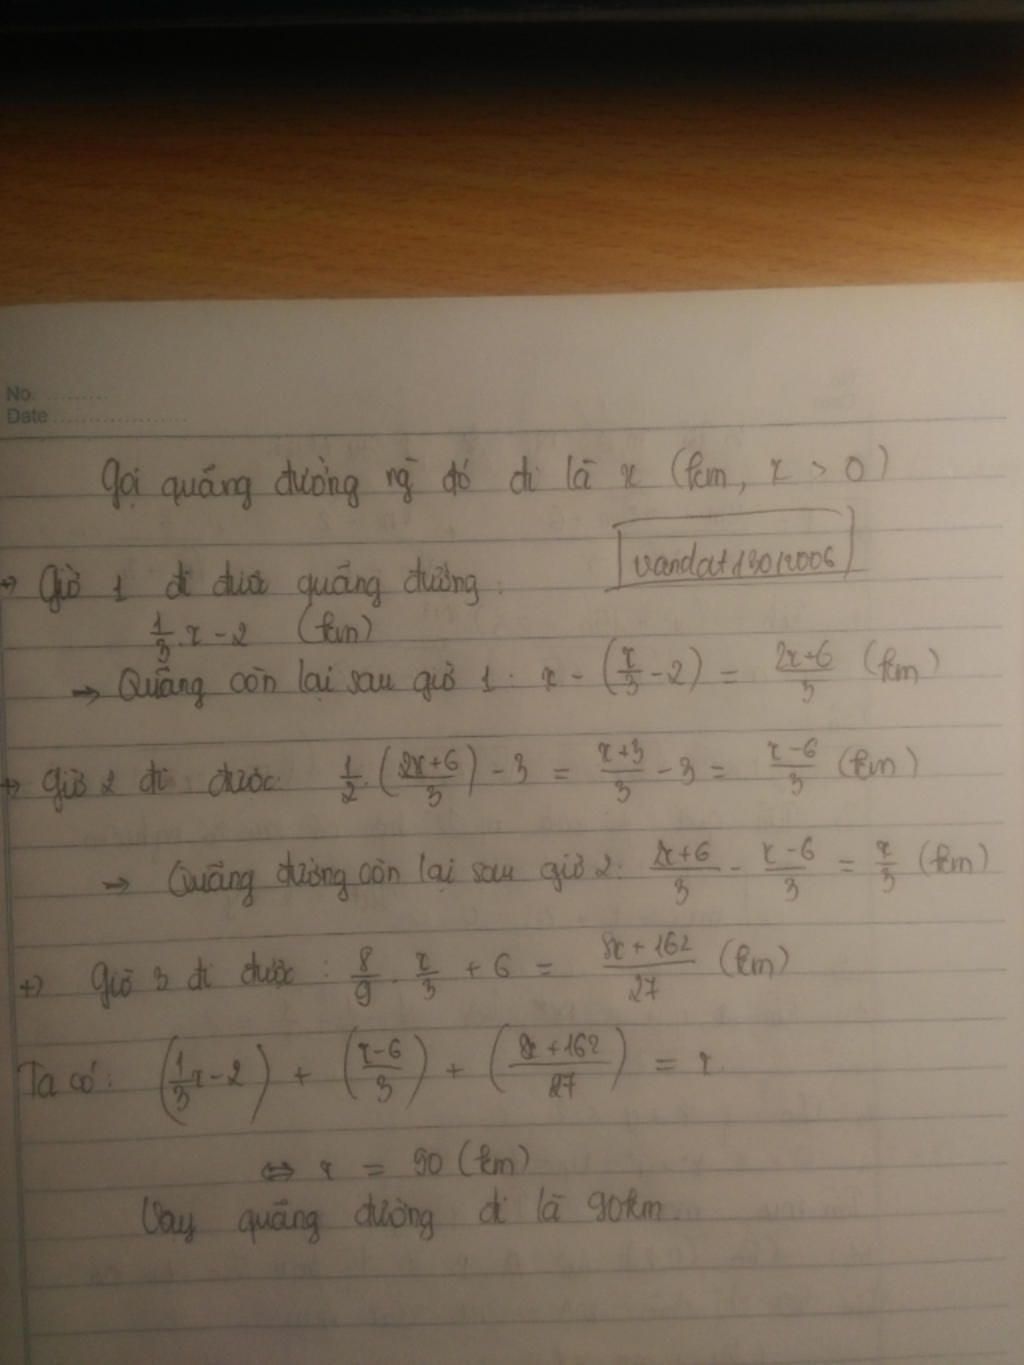 No. .........
Date ....................
Gọi quãng đường ng` đó đi là x (km, x > 0)
vandat13012006
+) Giờ 1 đi được quãng đường:
1/3.x - 2 (km)
→ Quãng còn lại sau giờ 1: x - (x/3 - 2) = 2x+6/3 (km)
+) Giờ 2 đi được 1/2.(2x+6/3) - 3 = x+3/3 - 3 = x-6/3 (km)
→ Quãng đường còn lại sau giờ 2: 2x+6/3 - x-6/3 = x/3 (km)
+) Giờ 3 đi được : 8/9 . x/3 + 6 = 8x+162/27 (km)
Ta có: (1/3x - 2) + (x-6/3) + (8x+162/27) = x
⇔ x = 90 (km)
Vay quãng đường đi là 90km.